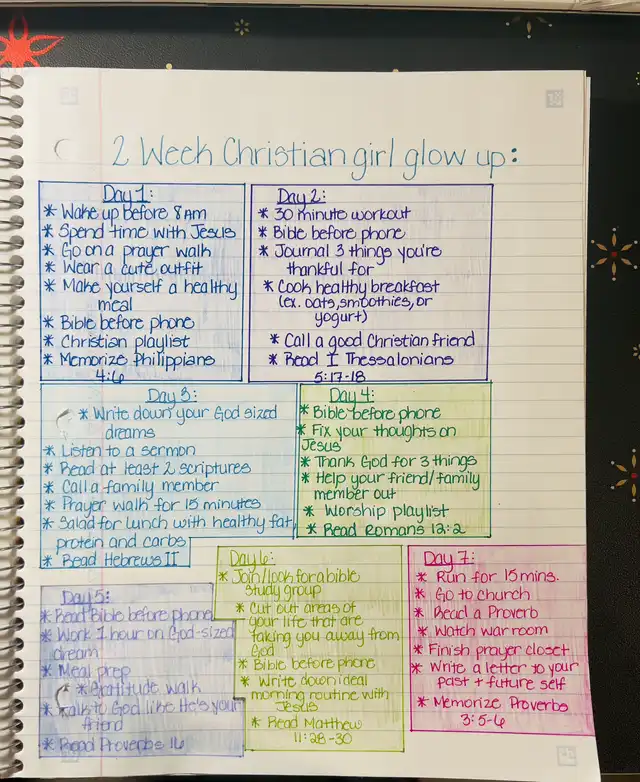 2 Week Christian girl glow up:
Day 1:
* Wake up before 8AM
* Spend time with Jesus
* Go on a prayer walk
* Wear a cute outfit
* Make yourself a healthy
meal
* Bible before phone
* Christian playlist
* Memorize Philippians
4:6
Day 2:
* 30 minute workout
* Bible before phone
* Journal 3 things you're
thankful for
* Cook healthy breakfast
(ex. oats, smoothies, or
yogurt)
* Call a good Christian friend
* Read I Thessalonians
5:17-18
Day 3:
* Write down your God sized
dreams
* Listen to a sermon
* Read at least 2 scriptures
* Call a family member
* Prayer walk for 15 minutes
* Salad for lunch with healthy fat,
protein and carbs
* Read Hebrews II
Day 4:
* Bible before phone
* Fix your thoughts on
Jesus
* Thank God for 3 things
* Help your friend/family
member out
* Worship playlist
* Read Romans 12:2
Day 5:
* Read Bible before phone
* Work 1 hour on God-sized
dream
* Meal prep
* Gratitude walk
* Talk to God like He's your
friend
* Read Proverbs 16
Day 6:
* Join/look for a bible
study group
* Cut out areas of
your life that are
taking you away from
God
* Bible before phone
* Write down ideal
morning routine with
Jesus
* Read Matthew
11:28-30
Day 7:
* Run for 15 mins.
* Go to church
* Read a Proverb
* Watch war room
* Finish prayer closet
* Write a letter to your
past + future self
* Memorize Proverbs
3:5-6